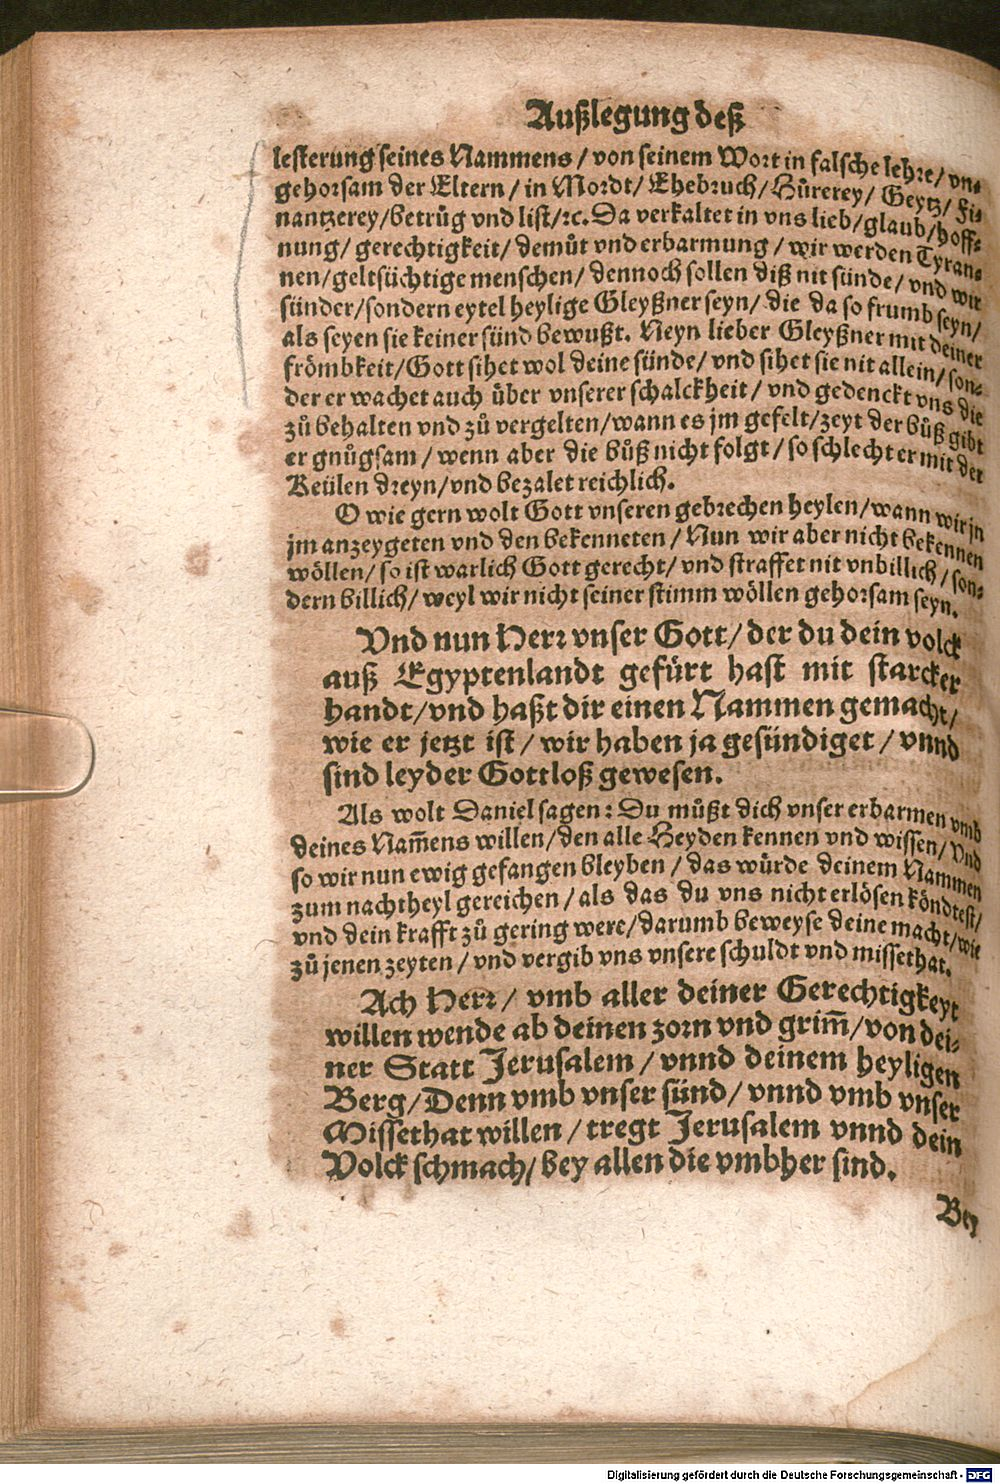 Außlegung deß
lesterung seines Nammens / von seinem Wort in falsche lehre / vn⸗
gehorsam der Eltern / in Mordt / Ehebruch / Hůrerey / Geytz / Fi⸗
nantzerey / betrůg vnd list / ꝛc. Da verkaltet in vns lieb / glaub / hoff⸗
nung / gerechtigkeit / demůt vnd erbarmung / wir werden Tyran⸗
nen / geltsüchtige menschen / dennoch sollen diß nit sünde / vnd wir
sünder / sondern eytel heylige Gleyßner seyn / die da so frumb seyn /
als seyen sie keiner sünd bewußt. Neyn lieber Gleyßner mit deiner
frömbkeit / Gott sihet wol deine sünde / vnd sihet sie nit allein / son⸗
der er wachet auch über vnserer schalckheit / vnd gedenckt vns die
zů behalten vnd zů vergelten / wann es jm gefelt / zeyt der bůß gibt
er gnůgsam / wenn aber die bůß nicht folgt / so schlecht er mit der
Keülen dreyn / vnd bezalet reichlich.
O wie gern wolt Gott vnseren gebrechen heylen / wann wir jn
jm anzeygeten vnd den bekenneten / Nun wir aber nicht bekennen
wöllen / so ist warlich Gott gerecht / vnd straffet nit vnbillich / son⸗
dern billich / weyl wir nicht seiner stimm wöllen gehorsam seyn.
Vnd nun Herr vnser Gott / der du dein volck
auß Egyptenlandt gefürt hast mit starcker
handt / vnd haßt dir einen Nammen gemacht /
wie er jetzt ist / wir haben ja gesündiget / vnnd
sind leyder Gottloß gewesen.
Als wolt Daniel sagen: Du müßt dich vnser erbarmen vmb
deines Nam̄ens willen / den alle Heyden kennen vnd wissen / Vnd
so wir nun ewig gefangen bleyben / das würde deinem Nammen
zum nachtheyl gereichen / als das du vns nicht erlösen köndtest /
vnd dein krafft zů gering were / darumb beweyse deine macht / wie
zů jenen zeyten / vnd vergib vns vnsere schuldt vnd missethat.
Ach Herr / vmb aller deiner Gerechtigkeyt
willen wende ab deinen zorn vnd grim̄ / von dei⸗
ner Statt Jerusalem / vnnd deinem heyligen
Berg / Denn vmb vnser sünd / vnnd vmb vnser
Missethat willen / tregt Jerusalem vnnd dein
Volck schmach / bey allen die vmbher sind.
Bey
Digitalisierung gefördert durch die Deutsche Forschungsgemeinschaft - DFG